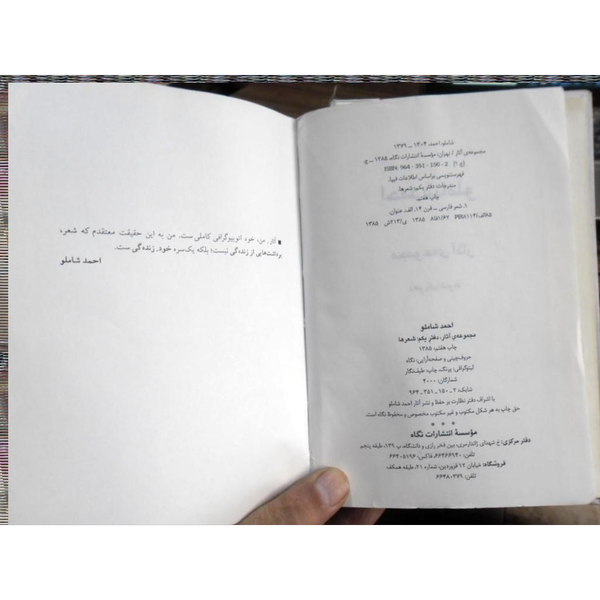 آثار من، خود اتوبیوگرافی کاملی‌ست. من به این حقیقت معتقدم که شعر،
برداشت‌هایی از زنده‌گی نیست؛ بلکه یک‌سره خود زنده‌گی ست.
احمد شاملو
شاملو، احمد، ۱۳۰۴ ـ ۱۳۷۹
مجموعه‌ی آثار / تهران: مؤسسهٔ انتشارات نگاه، ۱۳۸۵ ـ ج
ISBN: 964 - 351 - 150 - 2 (ج ۱)
فهرستنویسی براساس اطلاعات فیپا.
مندرجات: دفتر یکم: شعرها.
چاپ هفتم
۱. شعر فارسی ــ قرن ۱۴. الف. عنوان.
احمد شاملو
مجموعه‌ی آثار، دفتر یکم: شعرها
چاپ هفتم: ۱۳۸۵
حروف‌چینی و صفحه‌آرایی: نگاه
لیتوگرافی: پرنگ، چاپ: طیف‌نگار
شمارگان: ۴۰۰۰
شابک: ۲ ـ ۱۵۰ ـ ۳۵۱ ـ ۹۶۴
با اشراف دفتر نظارت بر حفظ و نشر آثار احمد شاملو
حق چاپ به هر شکل مکتوب و غیر مکتوب مخصوص و محفوظ نگاه است.
* * *
مؤسسهٔ انتشارات نگاه
دفتر مرکزی: خ شهدای ژاندارمری، بین فخر رازی و دانشگاه، پ ۱۳۹، طبقه پنجم
تلفن: ۶۶۴۶۶۹۴۰، فاکس: ۶۶۴۰۵۱۹۶
فروشگاه: خیابان ۱۲ فروردین، شماره ۲۱، طبقه همکف
تلفن: ۶۶۴۸۰۳۷۹